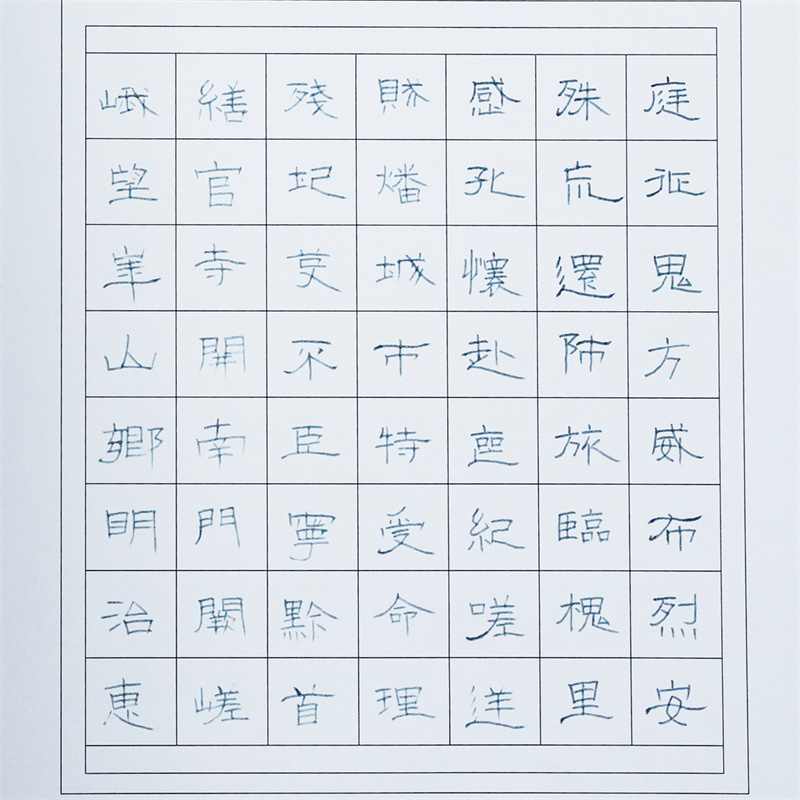 庭征鬼方威布烈安
殊荒還師旅臨槐里
感孔懷赴喪紀嗟逆
賊燔城市特受命理
殘圮芟不臣寧黔首
繕官寺開南門闕嵯
峨望崋山鄉明治惠